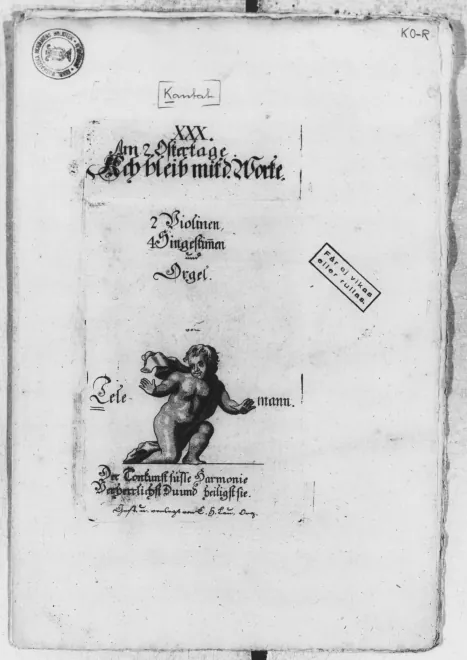 KO-R
Kantat
XXX.
Am 2 Ostertage
Ach bleib mit d. Worte.
2 Violinen,
4 Singestimen
und
Orgel.
von
Tele mann.
Får ej vikas
eller rullas.
Der Tonkunst süsse Harmonie
Verherrlichst Du und heiligst sie.